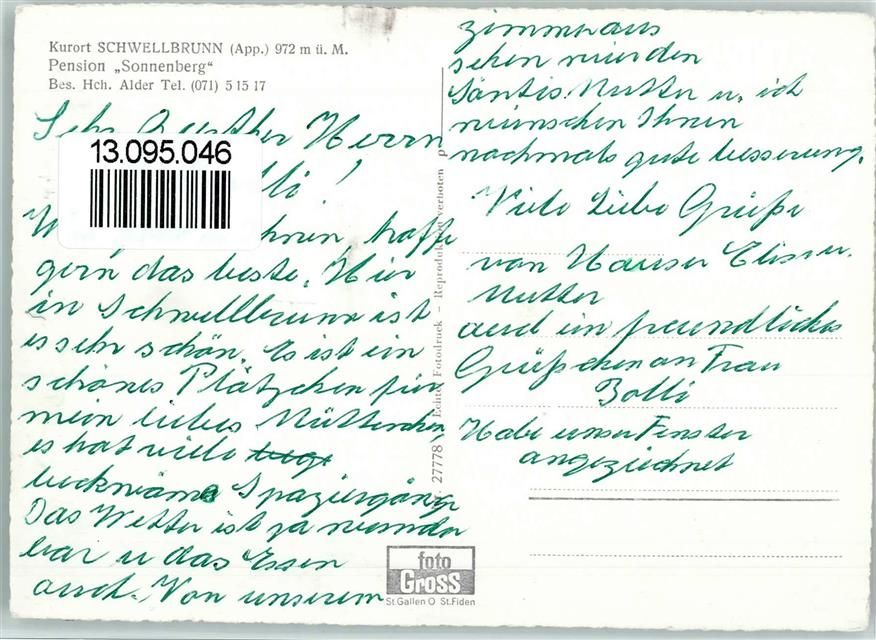 Kurort SCHWELLBRUNN (App.) 972 m ü. M.
Pension „Sonnenberg“
Bes. Hch. Alder Tel. (071) 5 15 17
Sehr Herrn
13.095.046
lli!
W hnen, hoffe
gern das beste. Hier
in Schwellbrunn ist
es sehr schön. Es ist ein
schönes Plätzchen für
mein liebes Mütterchen,
es hat viele
beckwäme Spaziergänge
Das Wetter ist ja wunder
bar u das Essen
auch. Von unserem
zimmer aus
sehen wir den
Säntis. Mutter u. ich
wünschen Ihnen
nochmals gute besserung.
Viele Liebe Grüße
von Hauser Elise u.
Mutter
auch ein freundliches
Grüßchen an Frau
Bolli
Habe unser Fenster
angezeichnet
27778 Echte Fotodruck – Reproduktion verboten
foto
GROSS
St. Gallen O St. Fiden